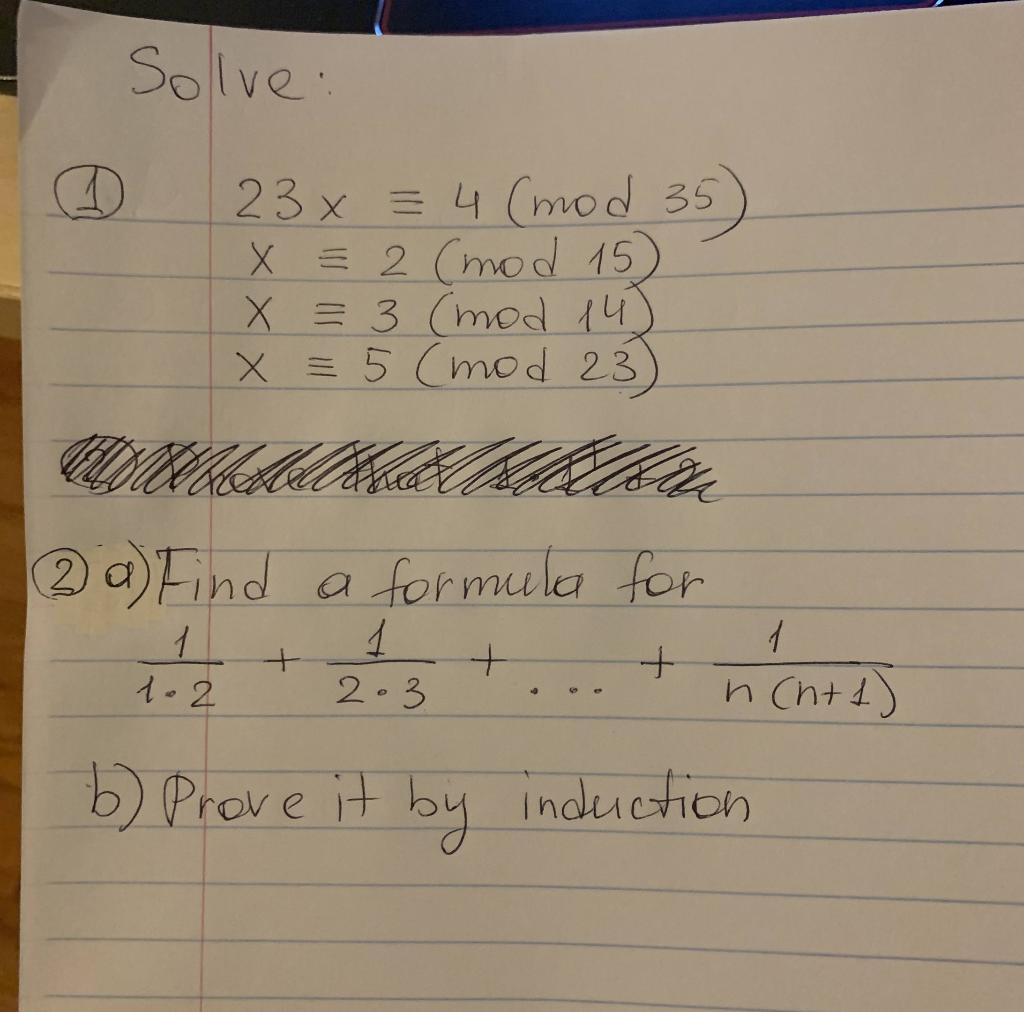 Solve:
① 23x ≡ 4 (mod 35)
x ≡ 2 (mod 15)
x ≡ 3 (mod 14)
x ≡ 5 (mod 23)
② a) Find a formula for
1/(1·2) + 1/(2·3) + .... + 1/(n(n+1))
b) Prove it by induction